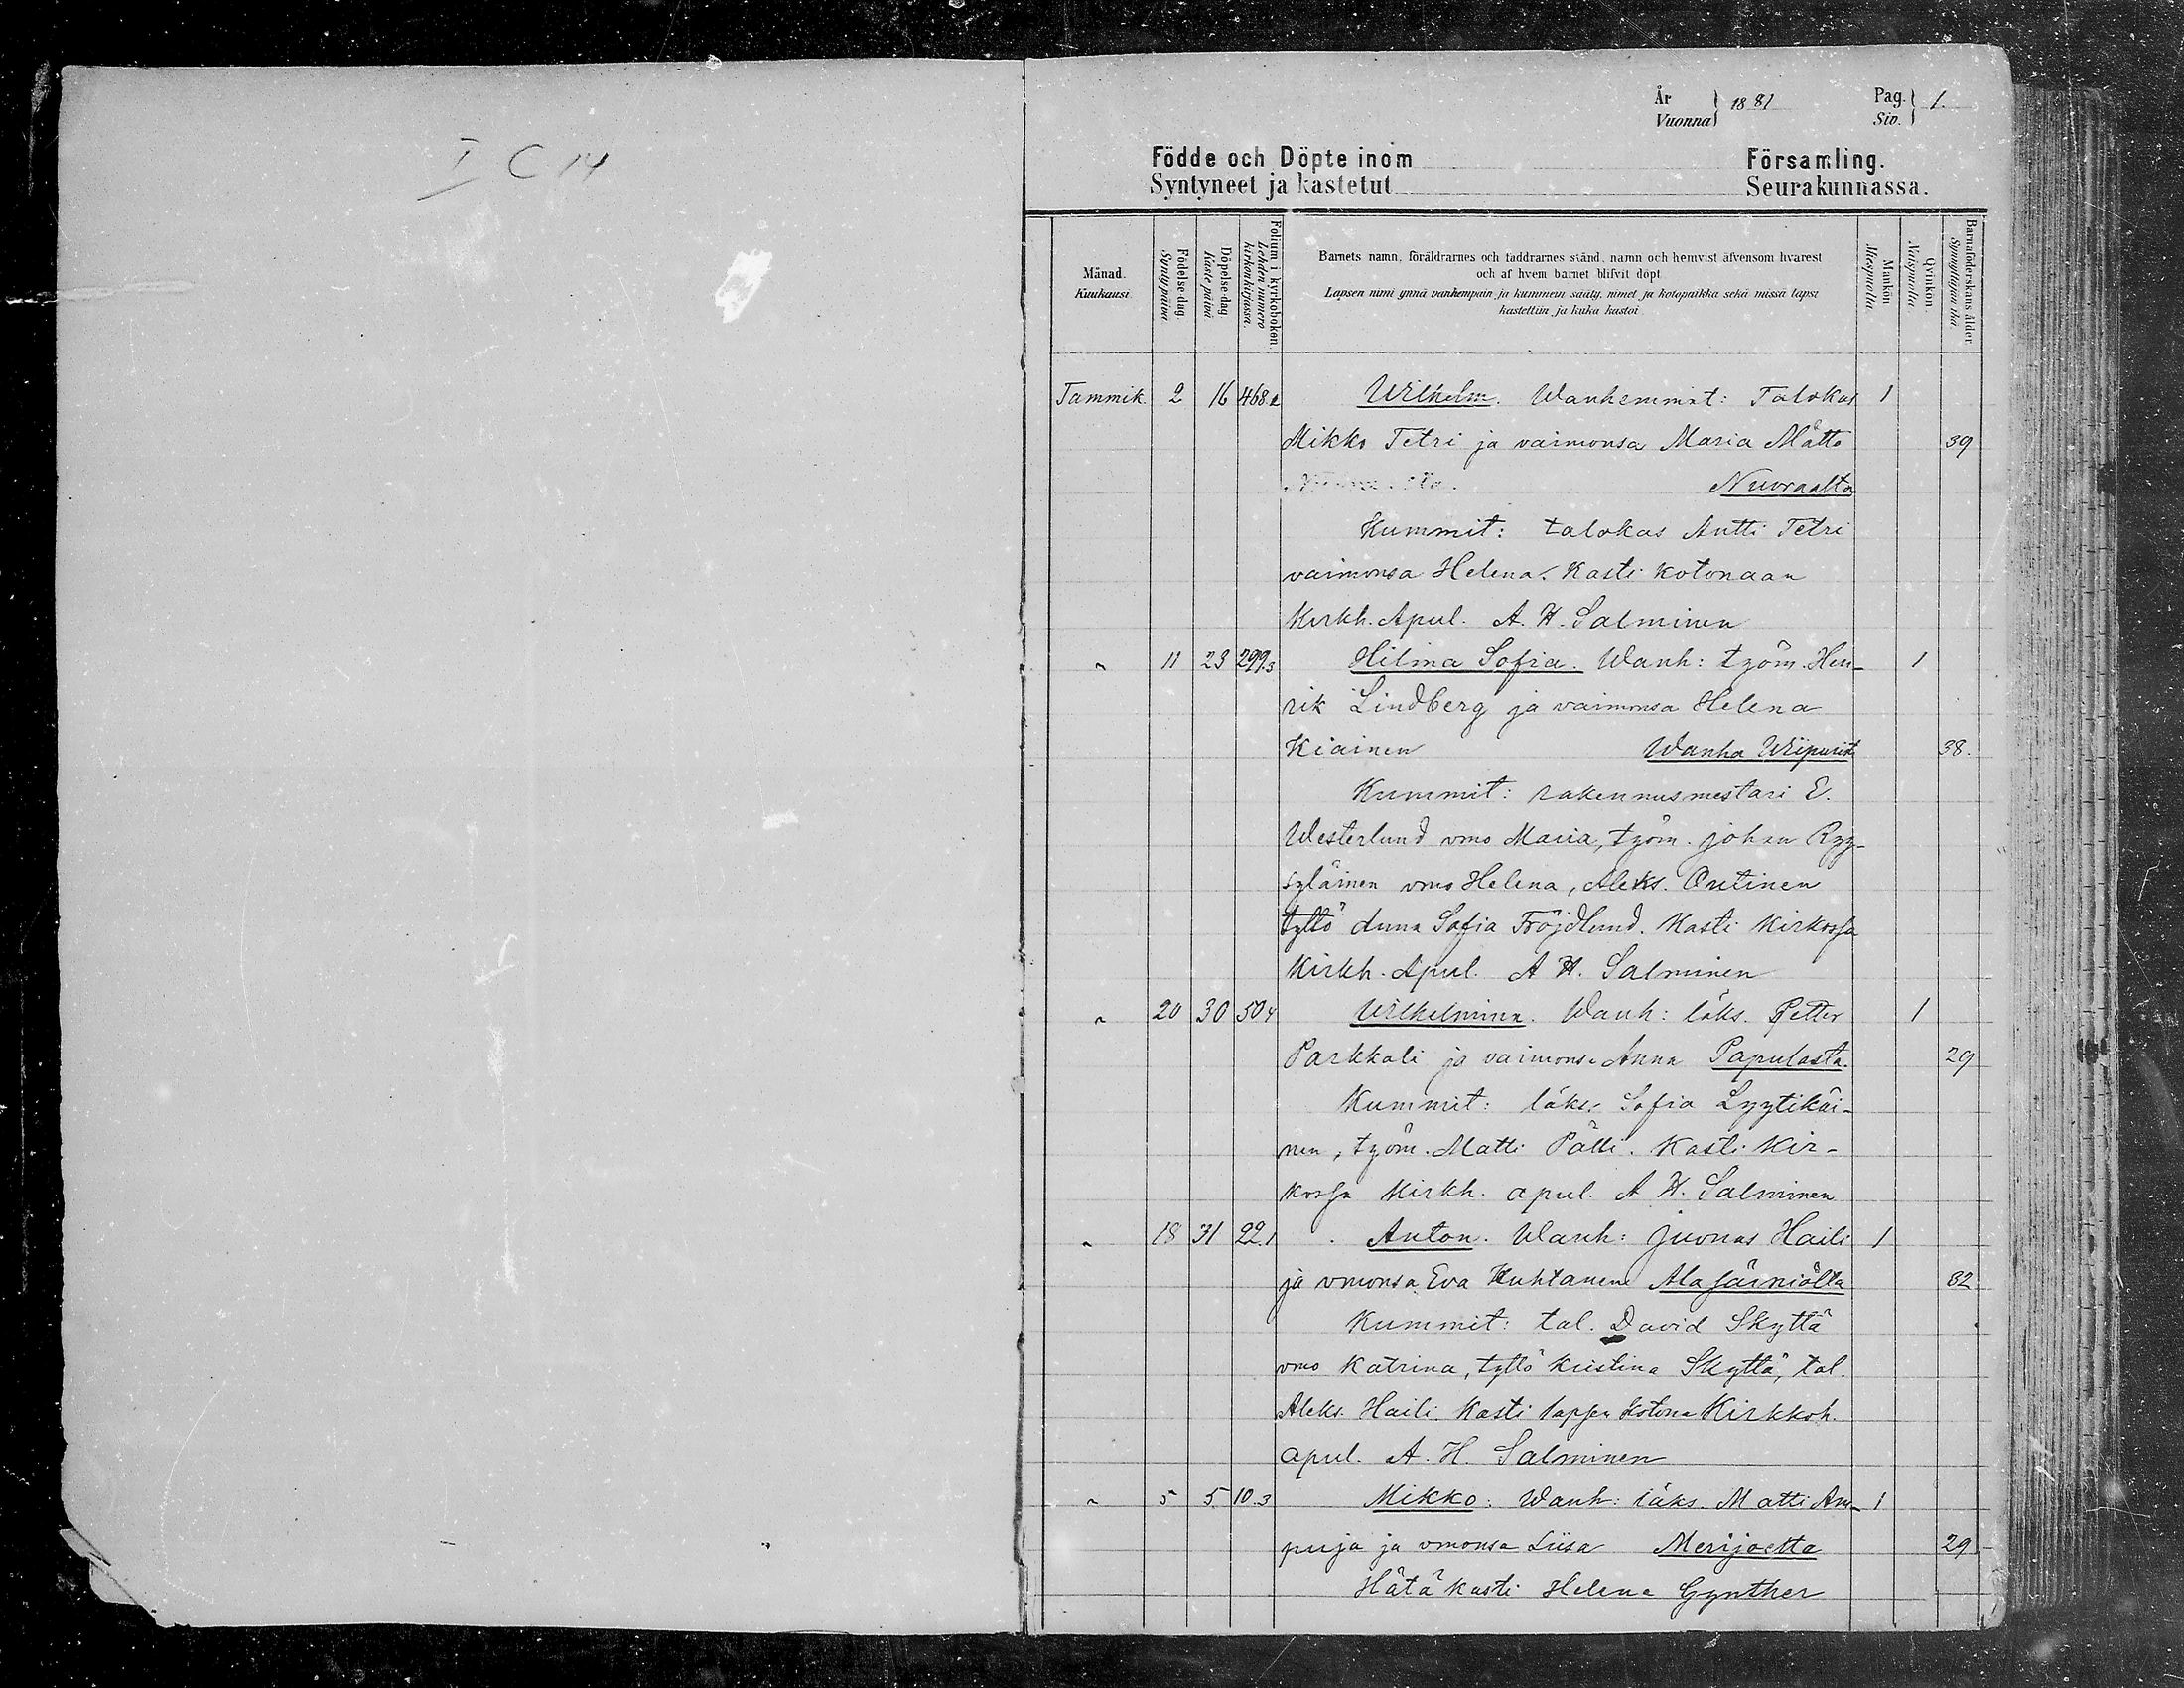 I C 14
År Vuonna 1881 Pag. Siv. 1.
Födde och Döpte inom Församling.
Syntyneet ja kastetut Seurakunnassa.
Månad. Kuukausi
Födelse dag. Synty päivä
Döpelse dag Kaste päivä
Folium i kyrkoboken. Lehden numero kirkonkirjassa.
Barnets namn, föräldrarnes och faddrarnes stånd, namn och hemvist äfvensom hvarest
och af hvem barnet blifvit döpt
Lapsen nimi ynnä vanhempain ja kummein sääty, nimet ja kotopaikka sekä missä lapsi
kastettiin ja kuka kastoi
Mankön Miespuolta.
Qvinkön. Naispuolta.
Barnaföderskans ålder Synnyttäjän ikä
Tammik. 2 16 468. Wilhelm. Wanhemmat: Talokas 1
Mikko Tetri ja vaimonsa Maria Mättö 39
Nuoraalta
Kummit: talokas Antti Tetri
vaimonsa Helena. Kasti kotonaan
Kirkh. Apul. A. H. Salminen
" 11 23 299.3 Hilma Sofia. Wanh: työm. Hen- 1
rik Lindberg ja vaimonsa Helena
Kiainen Wanha Wiipurista 38.
Kummit: rakennusmestari E.
Westerlund vmo Maria, työm. Johan Ryy-
syläinen vmo Helena, Aleks. Ontinen
tyttö Anna Sofia Fröjdlund. Kasti Kirkossa
Kirkh. Apul. A H. Salminen
" 20 30 504 Wilhelmina. Wanh: läks. Petter 1
Parkkali ja vaimonsa Anna Papulasta. 29
Kummit: läks: Sofia Lyytikäi-
nen, työm. Matti Pälli. Kasti Kir-
kossa Kirkh. apul. A H. Salminen
" 18 31 22.1 Anton. Wanh: Juonas Haili 1
ja vmonsa Eva Huhtanen Ala Säiniöltä 32
Kummit: tal. David Skyttä
vmo Katrina, tyttö Kristina Skyttä, tal.
Aleks. Haili. Kasti lapsen kotona Kirkkoh.
apul. A. H. Salminen
" 5 5 10.3 Mikko: Wanh: läks. Matti Am- 1
puja ja vmonsa Liisa Merijoelta 29
Hätä kasti Helena Gynther